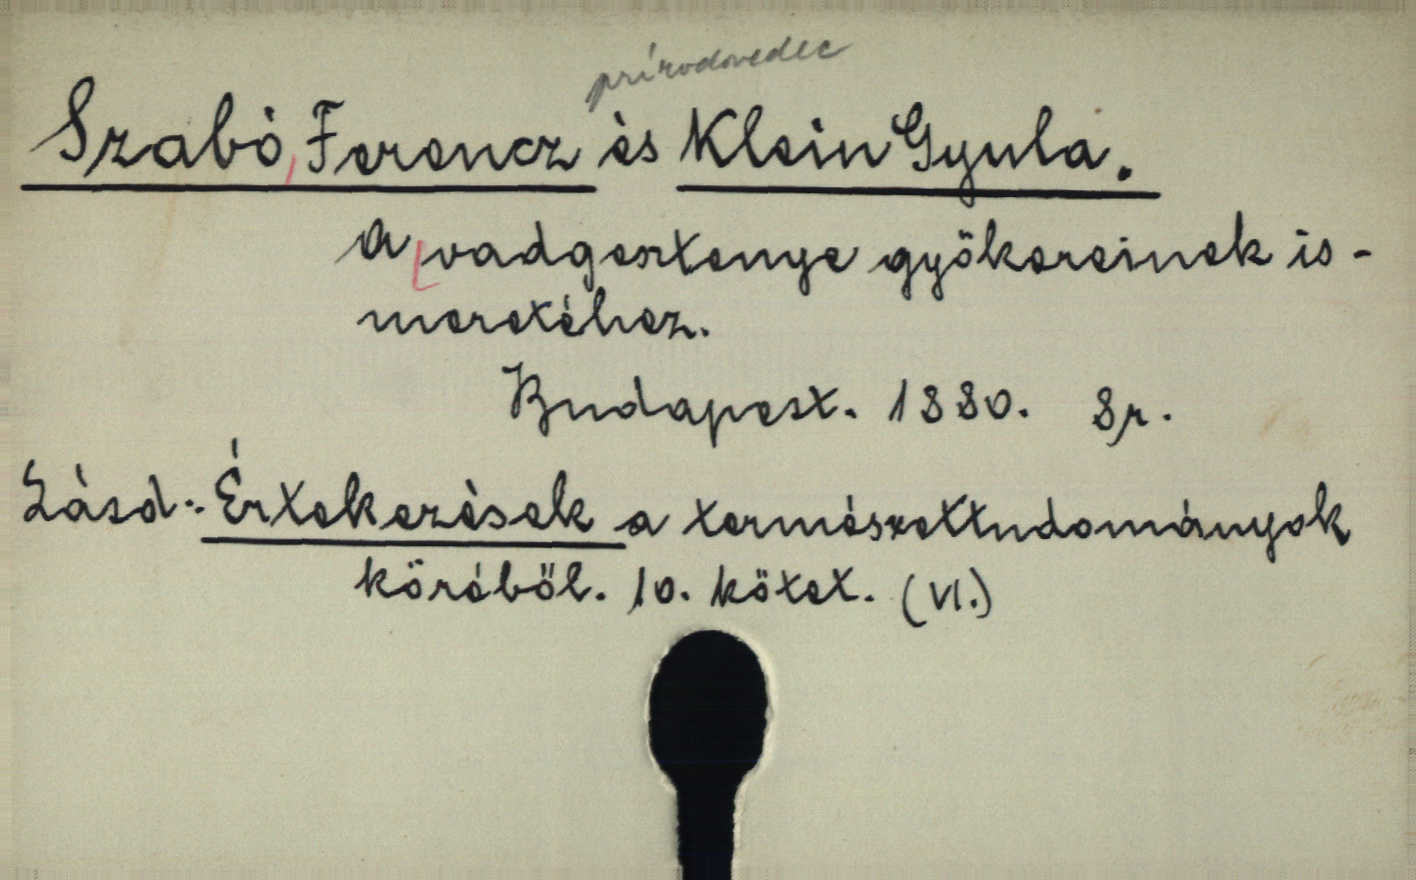 prírodovedec
Szabó, Ferencz és Klein Gyula.
A vadgesztenye gyökereinek is-
meretéhez.
Budapest. 1880. 8r.
Lásd: Értekezések a természettudományok
köréből. 10. kötet. (VI.)